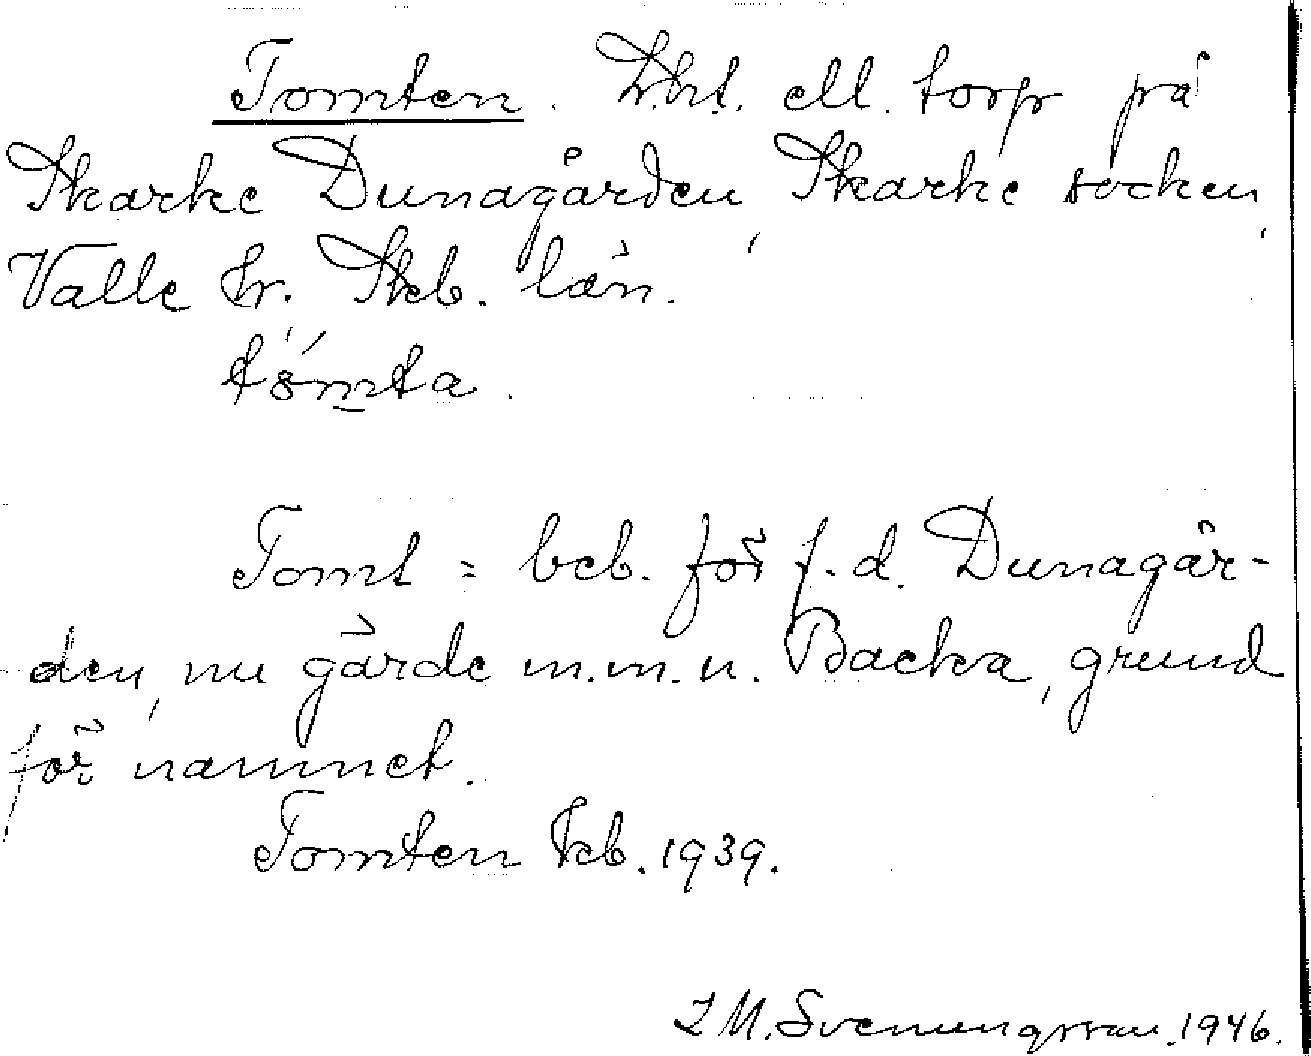 Tomten. Lht. ell. torp på
Skarke Dunagården, Skarke socken,
Valle hr. Skb. län.
tǒ́mta.
Tomt = beb. för f.d. Dunagår-
den, nu gärde m.m. u. Backa, grund
för namnet.
Tomten Kb. 1939.
I M. Svenungsson. 1946.